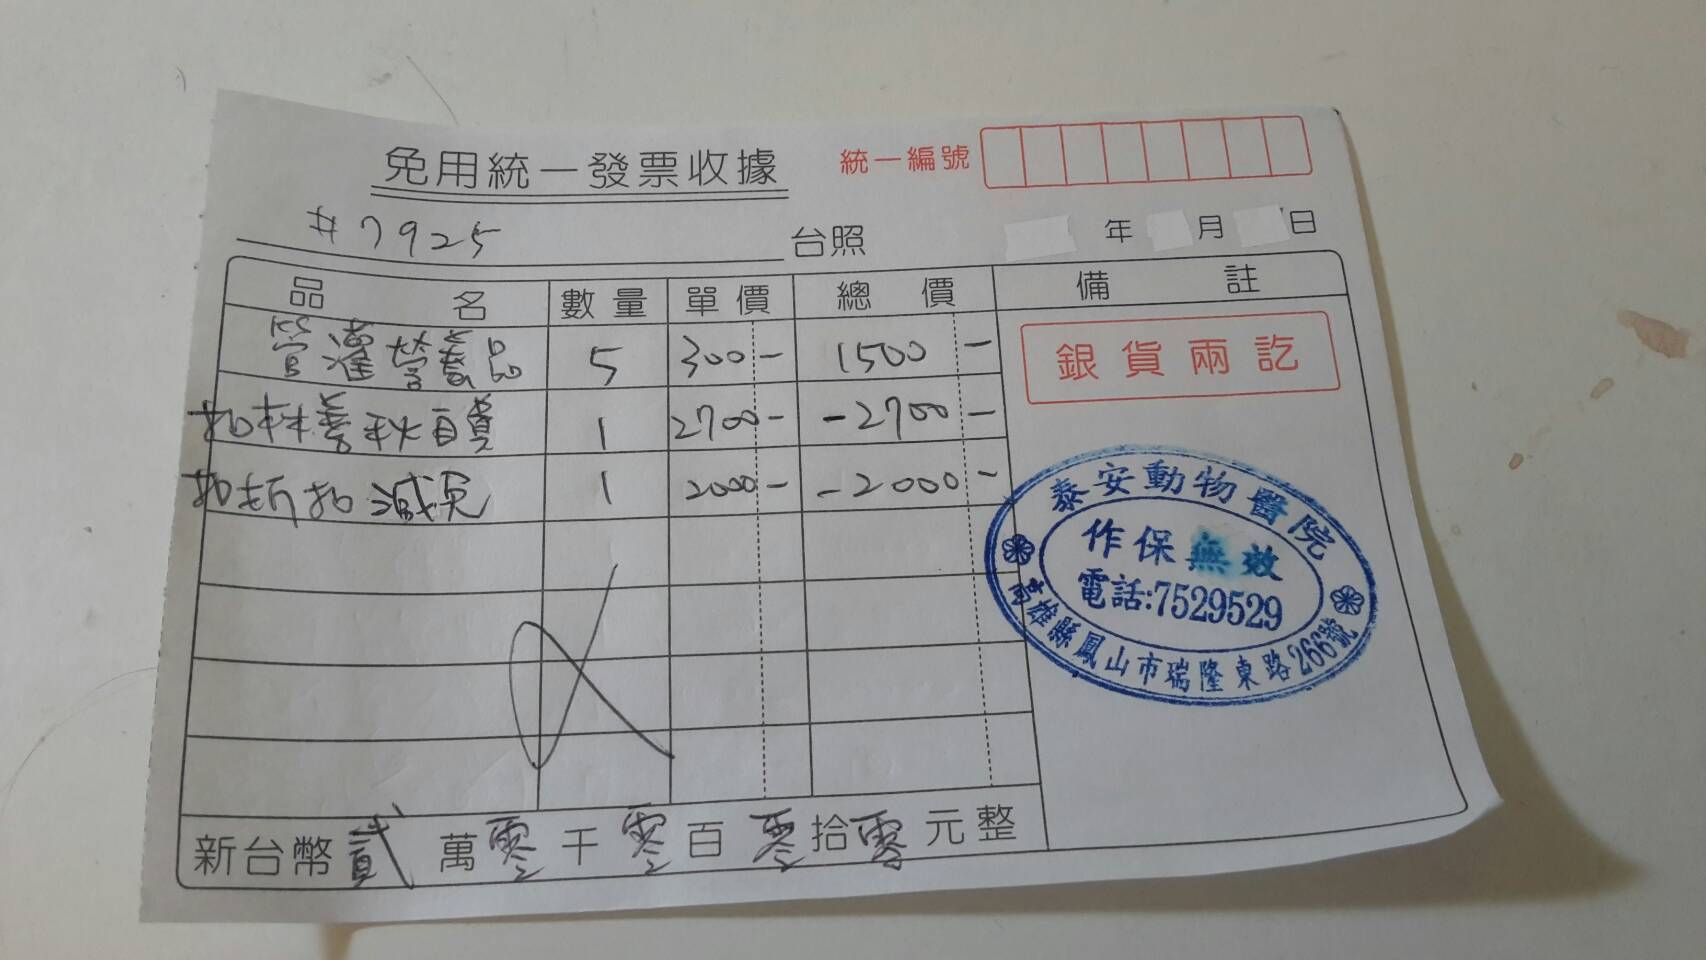 免用統一發票收據
統一編號
#7925 台照
年 月 日
品名 數量 單價 總價 備註
管灌營養品 5 300- 1500-
扣林善秋自費 1 2700- -2700-
扣折扣減免 1 2000- -2000-
銀貨兩訖
泰安動物醫院
作保無效
電話:7529529
高雄縣鳳山市瑞隆東路266號
新台幣貳萬零千零百零拾零元整